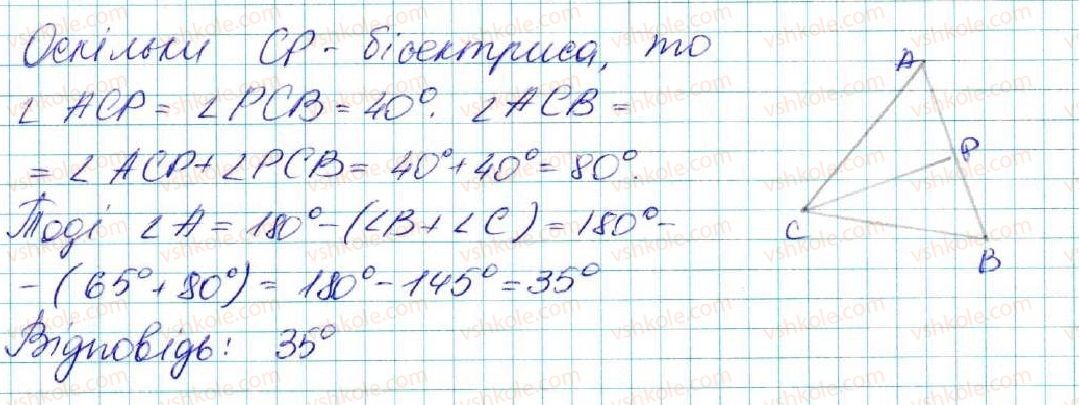 Оскільки CP - бісектриса, то
∠ ACP = ∠ PCB = 40°. ∠ ACB =
= ∠ ACP + ∠ PCB = 40° + 40° = 80°.
Тоді ∠ A = 180° - (∠B + ∠C) = 180° -
- (65° + 80°) = 180° - 145° = 35°
Відповідь: 35°
A
P
C
B
vshkole.com